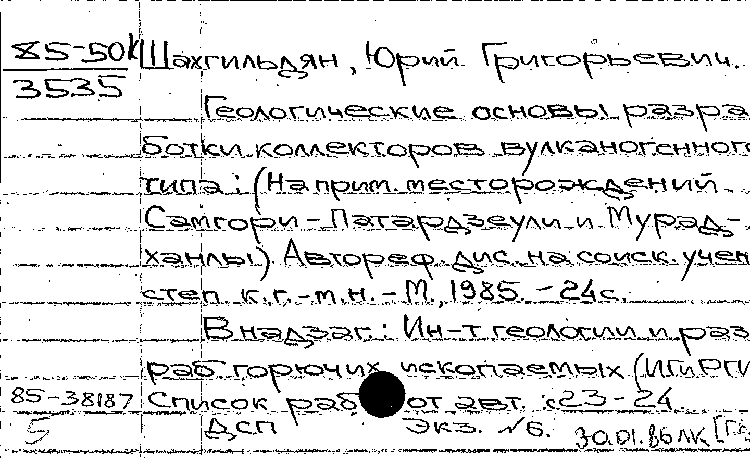 85-50К Шахгильдян, Юрий Григорьевич.
3535
Геологические основы разра
ботки коллекторов вулканогенного
типа: (На прим. месторождений
Самгори-Патардзеули и Мурад-
ханлы). Автореф. дис. на соиск. учен
степ. к.г.-м.н. - М., 1985. - 24 с.
В надзаг.: Ин-т геологии и раз
раб. горючих ископаемых (ИГиРГИ
85-38187 Список раб. от авт. с. 23-24.
5 ДСП Экз. № 6. 30.01.86 ЛК